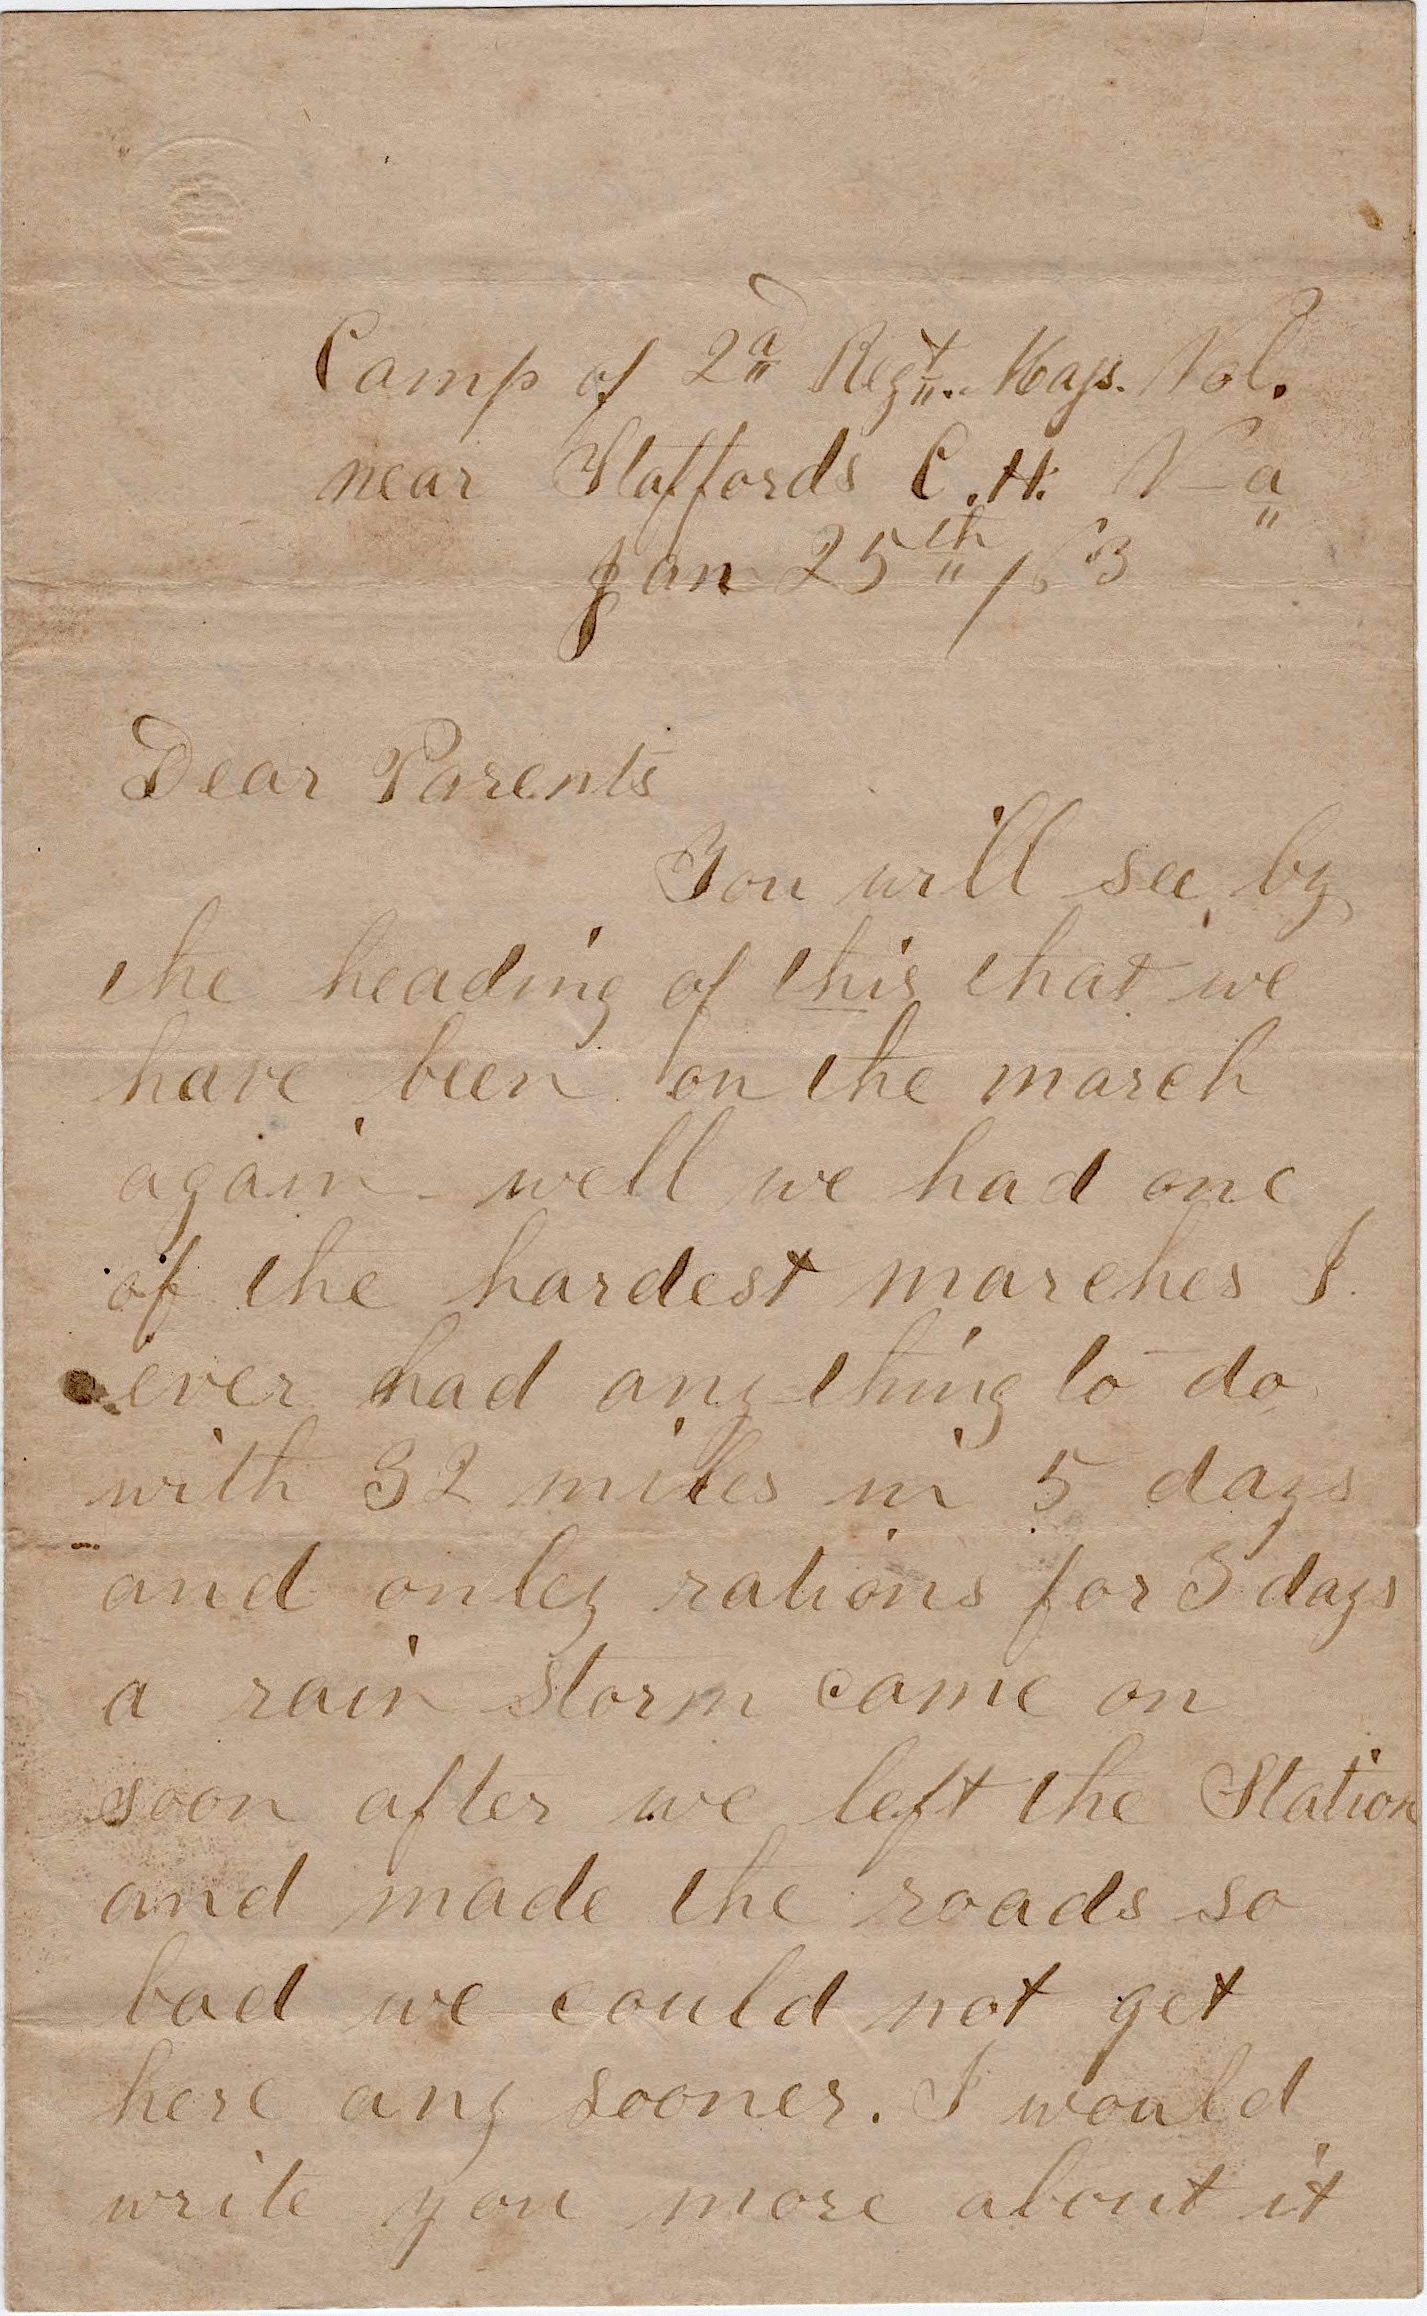 Camp of 2d Regt. Mass. Vol.
near Staffords C.H. Va
Jan 25th /63
Dear Parents
You will see by
the heading of this that we
have been on the march
again - well we had one
of the hardest marches I
ever had any thing to do
with 32 miles in 5 days
and only rations for 3 days
a rain storm came on
soon after we left the Station
and made the roads so
bad we could not get
here any sooner. I would
write you more about it